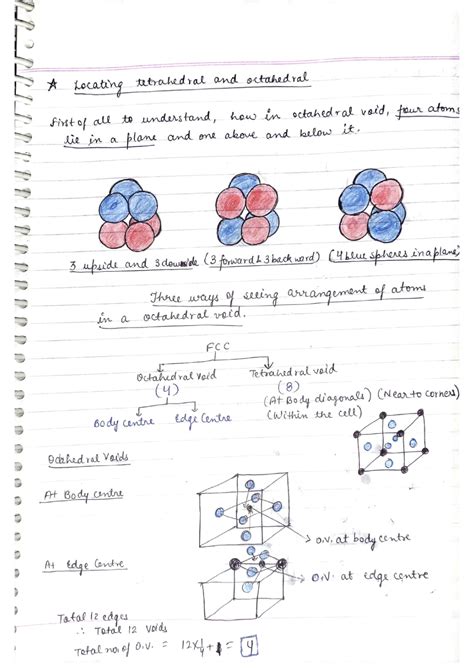 * Locating tetrahedral and octahedral
First of all to understand, how in octahedral void, four atoms
lie in a plane and one above and below it.
3 upside and 3 downside (3 forward & 3 backward) (4 blue spheres in a plane)
Three ways of seeing arrangement of atoms
in a octahedral void.
FCC
Octahedral void
(4)
Tetrahedral void
(8)
(At Body diagonals) (Near to corners)
(Within the cell)
Body centre Edge Centre
Octahedral Voids
At Body centre
o.v. at body centre
At Edge Centre
O.V. at edge centre
Total 12 edges
∴ Total 12 voids
Total no. of O.V. = 12x1/4+1 = 4